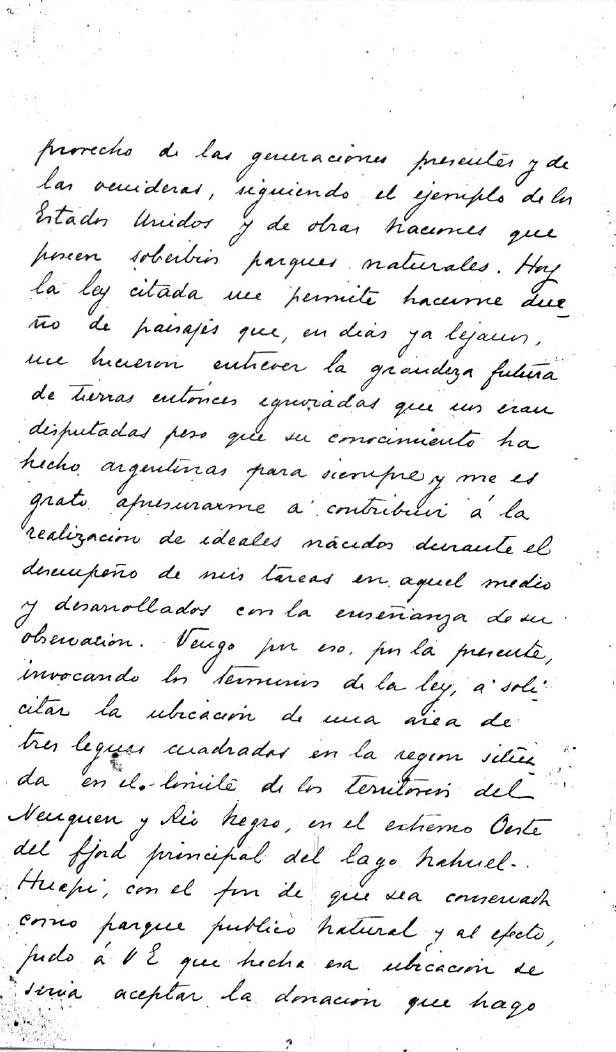 provecho de las generaciones presentes y de
las venideras, siguiendo el ejemplo de los
Estados Unidos y de otras naciones que
poseen soberbios parques naturales. Hoy
la ley citada me permite hacerme due-
ño de paisajes que, en dias ya lejanos,
me hicieron entrever la grandeza futura
de tierras entónces ignoradas que nos eran
disputadas pero que su conocimiento ha
hecho argentinas para siempre, y me es
grato apresurarme á contribuir á la
realizacion de ideales nacidos durante el
desempeño de mis tareas en aquel medio
y desarrollados con la enseñanza de su
observacion. Vengo por eso, por la presente,
invocando los terminos de la ley, á soli-
citar la ubicacion de una area de
tres leguas cuadradas en la region situa-
da en el limite de los territorios del
Neuquen y Rio Negro, en el extremo Oeste
del fjord principal del lago Nahuel-
Huapi, con el fin de que sea conservada
como parque publico natural y al efecto,
pido á VE que hecha esa ubicacion se
sirva aceptar la donacion que hago